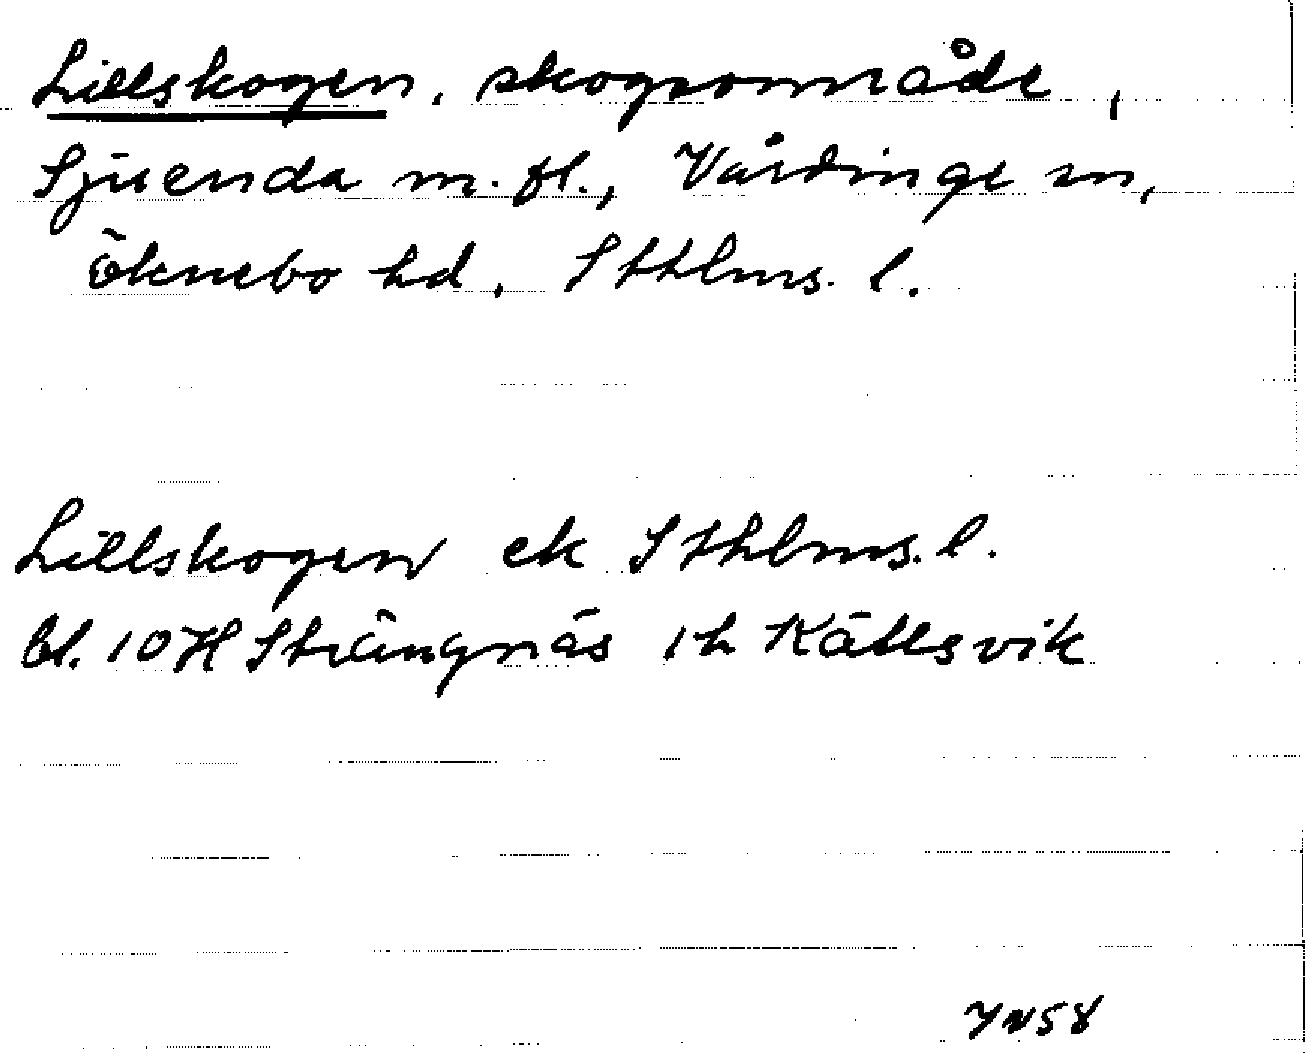 Lillskogen, skogsområde,
Sjuenda m.fl., Vårdinge sn,
Öknebo hd, Sthlms. l.
Lillskogen ek Sthlms. l.
bl. 10H Strängnäs 1h Källsvik